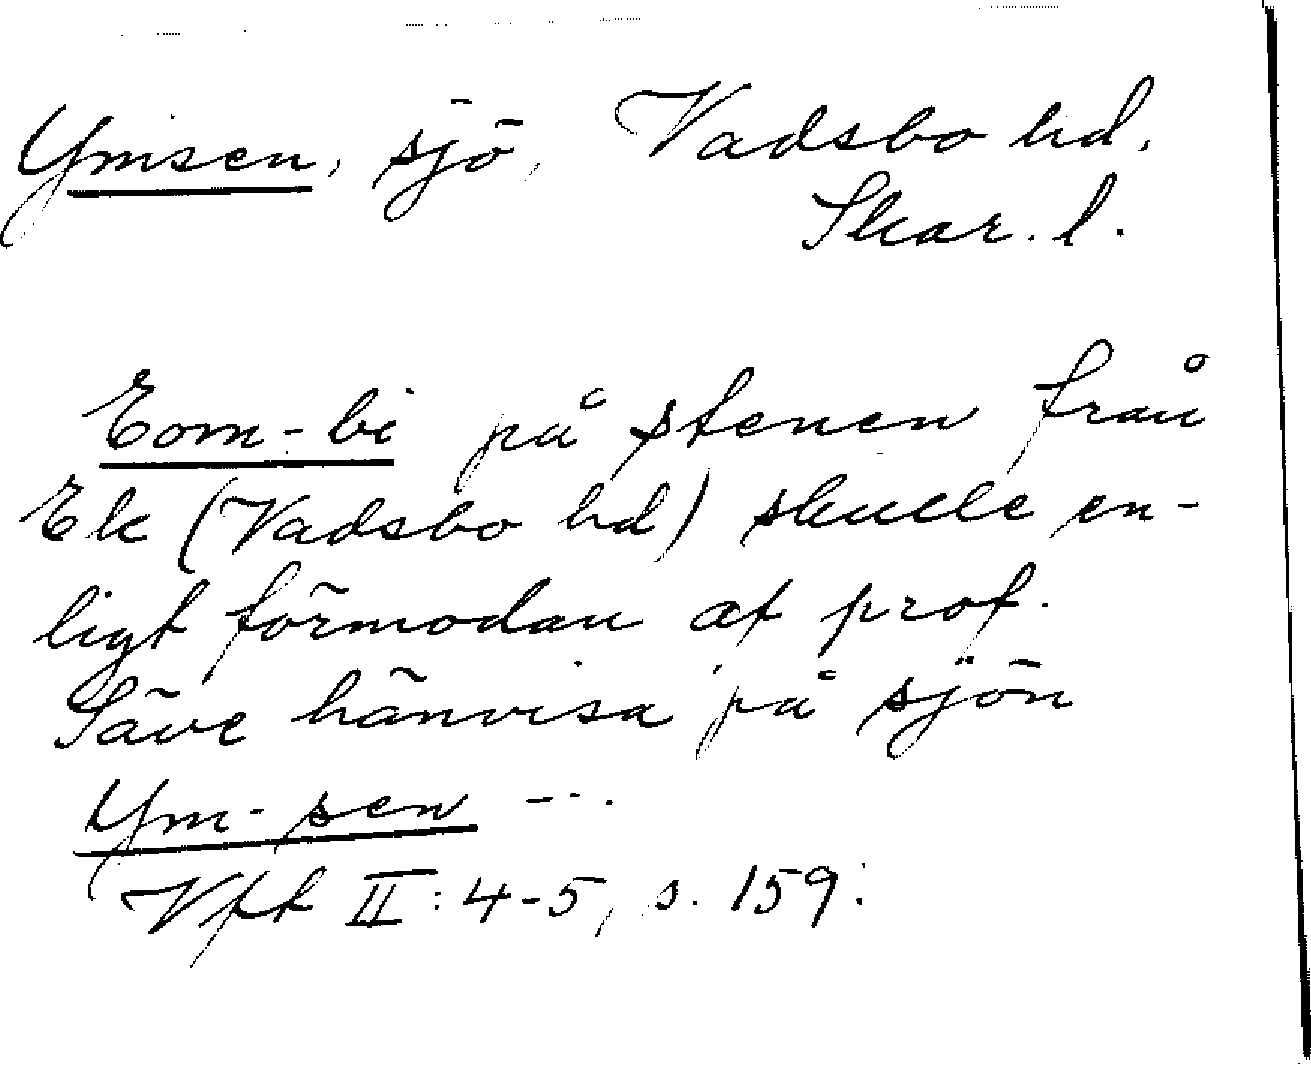 Ymsen, sjö, Vadsbo hd,
Skar. l.
Eom-bi på stenen från
Ek (Vadsbo hd) skulle en-
ligt förmodan af prof.
Säve hänvisa på sjön
Ym-sen ---.
Vft II: 4-5, s. 159.